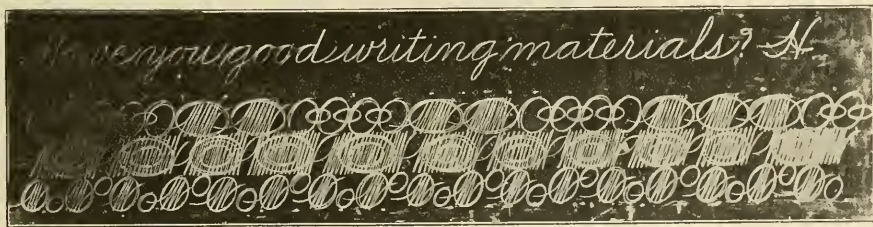 Have you good writing materials? H